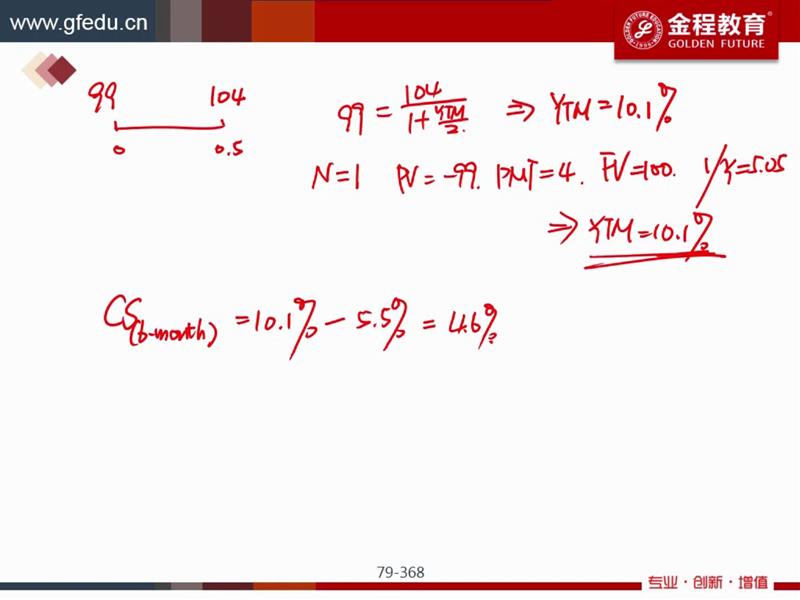 www.gfedu.cn
金程教育
GOLDEN FUTURE
99 104
0 0.5
99 = 104 / (1 + YTM/2) ⇒ YTM = 10.1%
N=1 PV=-99. PMT=4. FV=100. I/Y=5.05
⇒ YTM=10.1%
CS(6-month) = 10.1% - 5.5% = 4.6%
79-368
专业·创新·增值